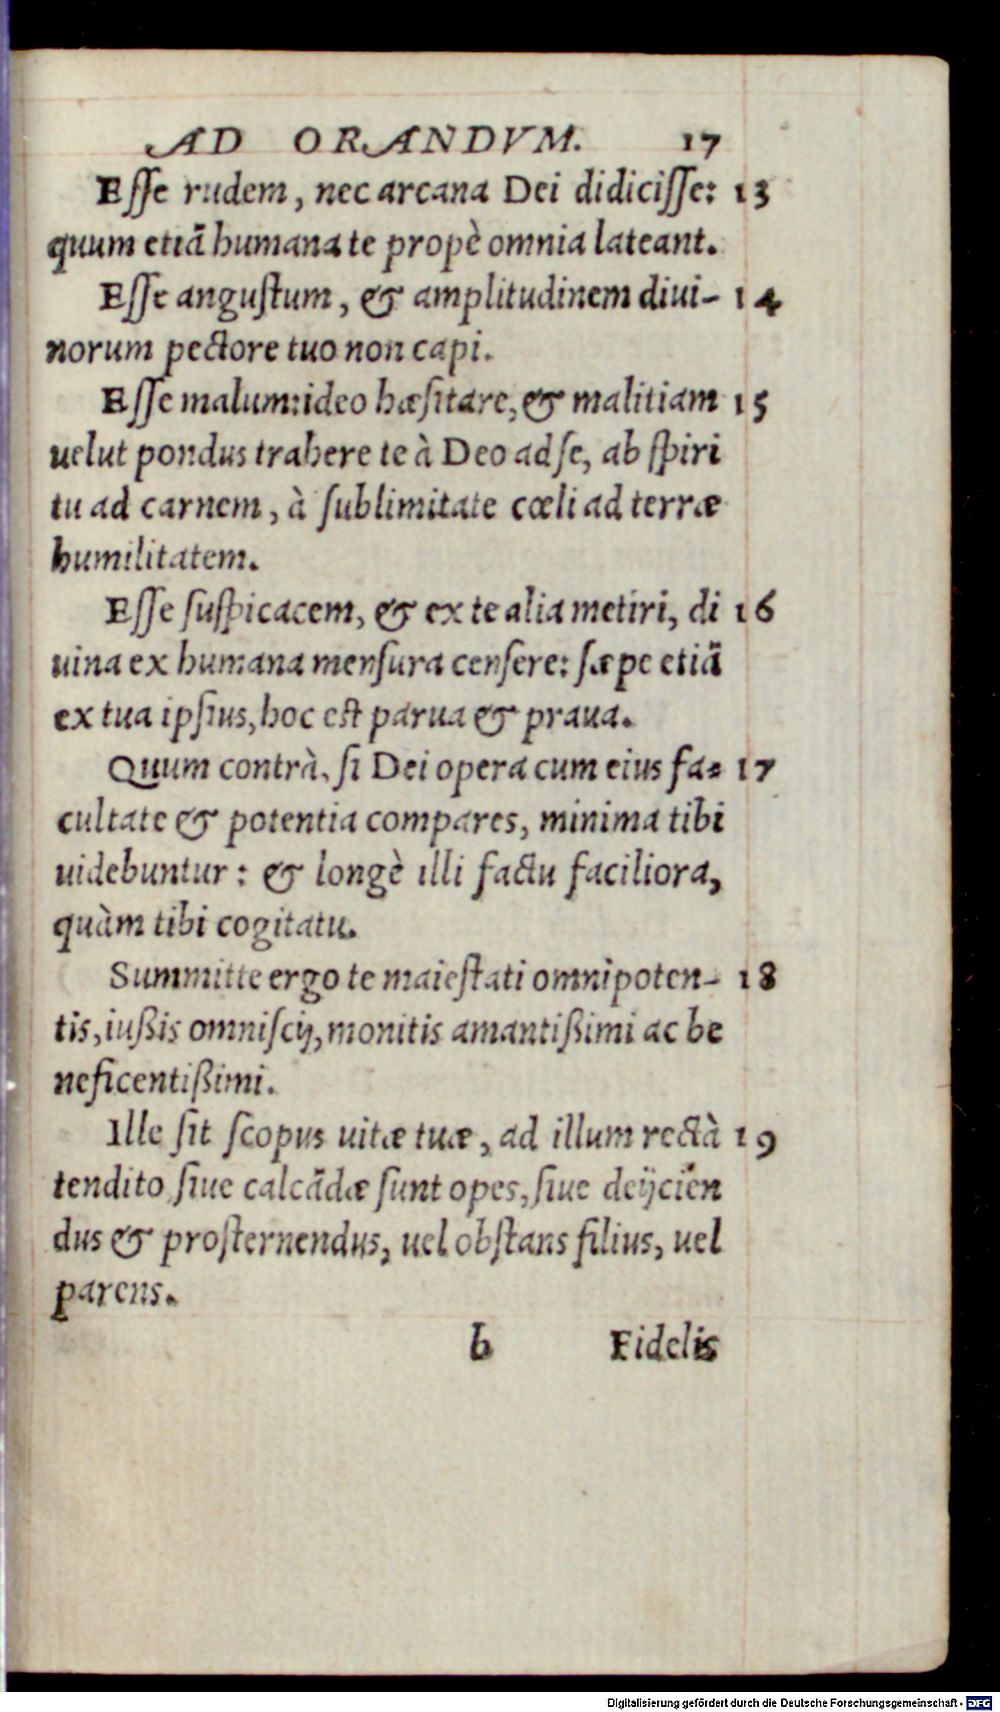 AD ORANDVM. 17
Esse rudem, nec arcana Dei didicisse: 13
quum etiā humana te propè omnia lateant.
Esse angustum, & amplitudinem diui- 14
norum pectore tuo non capi.
Esse malum: ideo hæsitare, & malitiam 15
uelut pondus trahere te à Deo ad se, ab spiri
tu ad carnem, à sublimitate cœli ad terræ
humilitatem.
Esse suspicacem, & ex te alia metiri, di 16
uina ex humana mensura censere: sæpe etiā
ex tua ipsius, hoc est parua & praua.
Quum contrà, si Dei opera cum eius fa- 17
cultate & potentia compares, minima tibi
uidebuntur: & longè illi factu faciliora,
quàm tibi cogitatu.
Summitte ergo te maiestati omnipoten- 18
tis, iußis omniscij, monitis amantißimi ac be
neficentißimi.
Ille sit scopus uitæ tuæ, ad illum rectà 19
tendito, siue calcādæ sunt opes, siue deijcien
dus & prosternendus, uel obstans filius, uel
parens.
b Fidelis
Digitalisierung gefördert durch die Deutsche Forschungsgemeinschaft - DFG